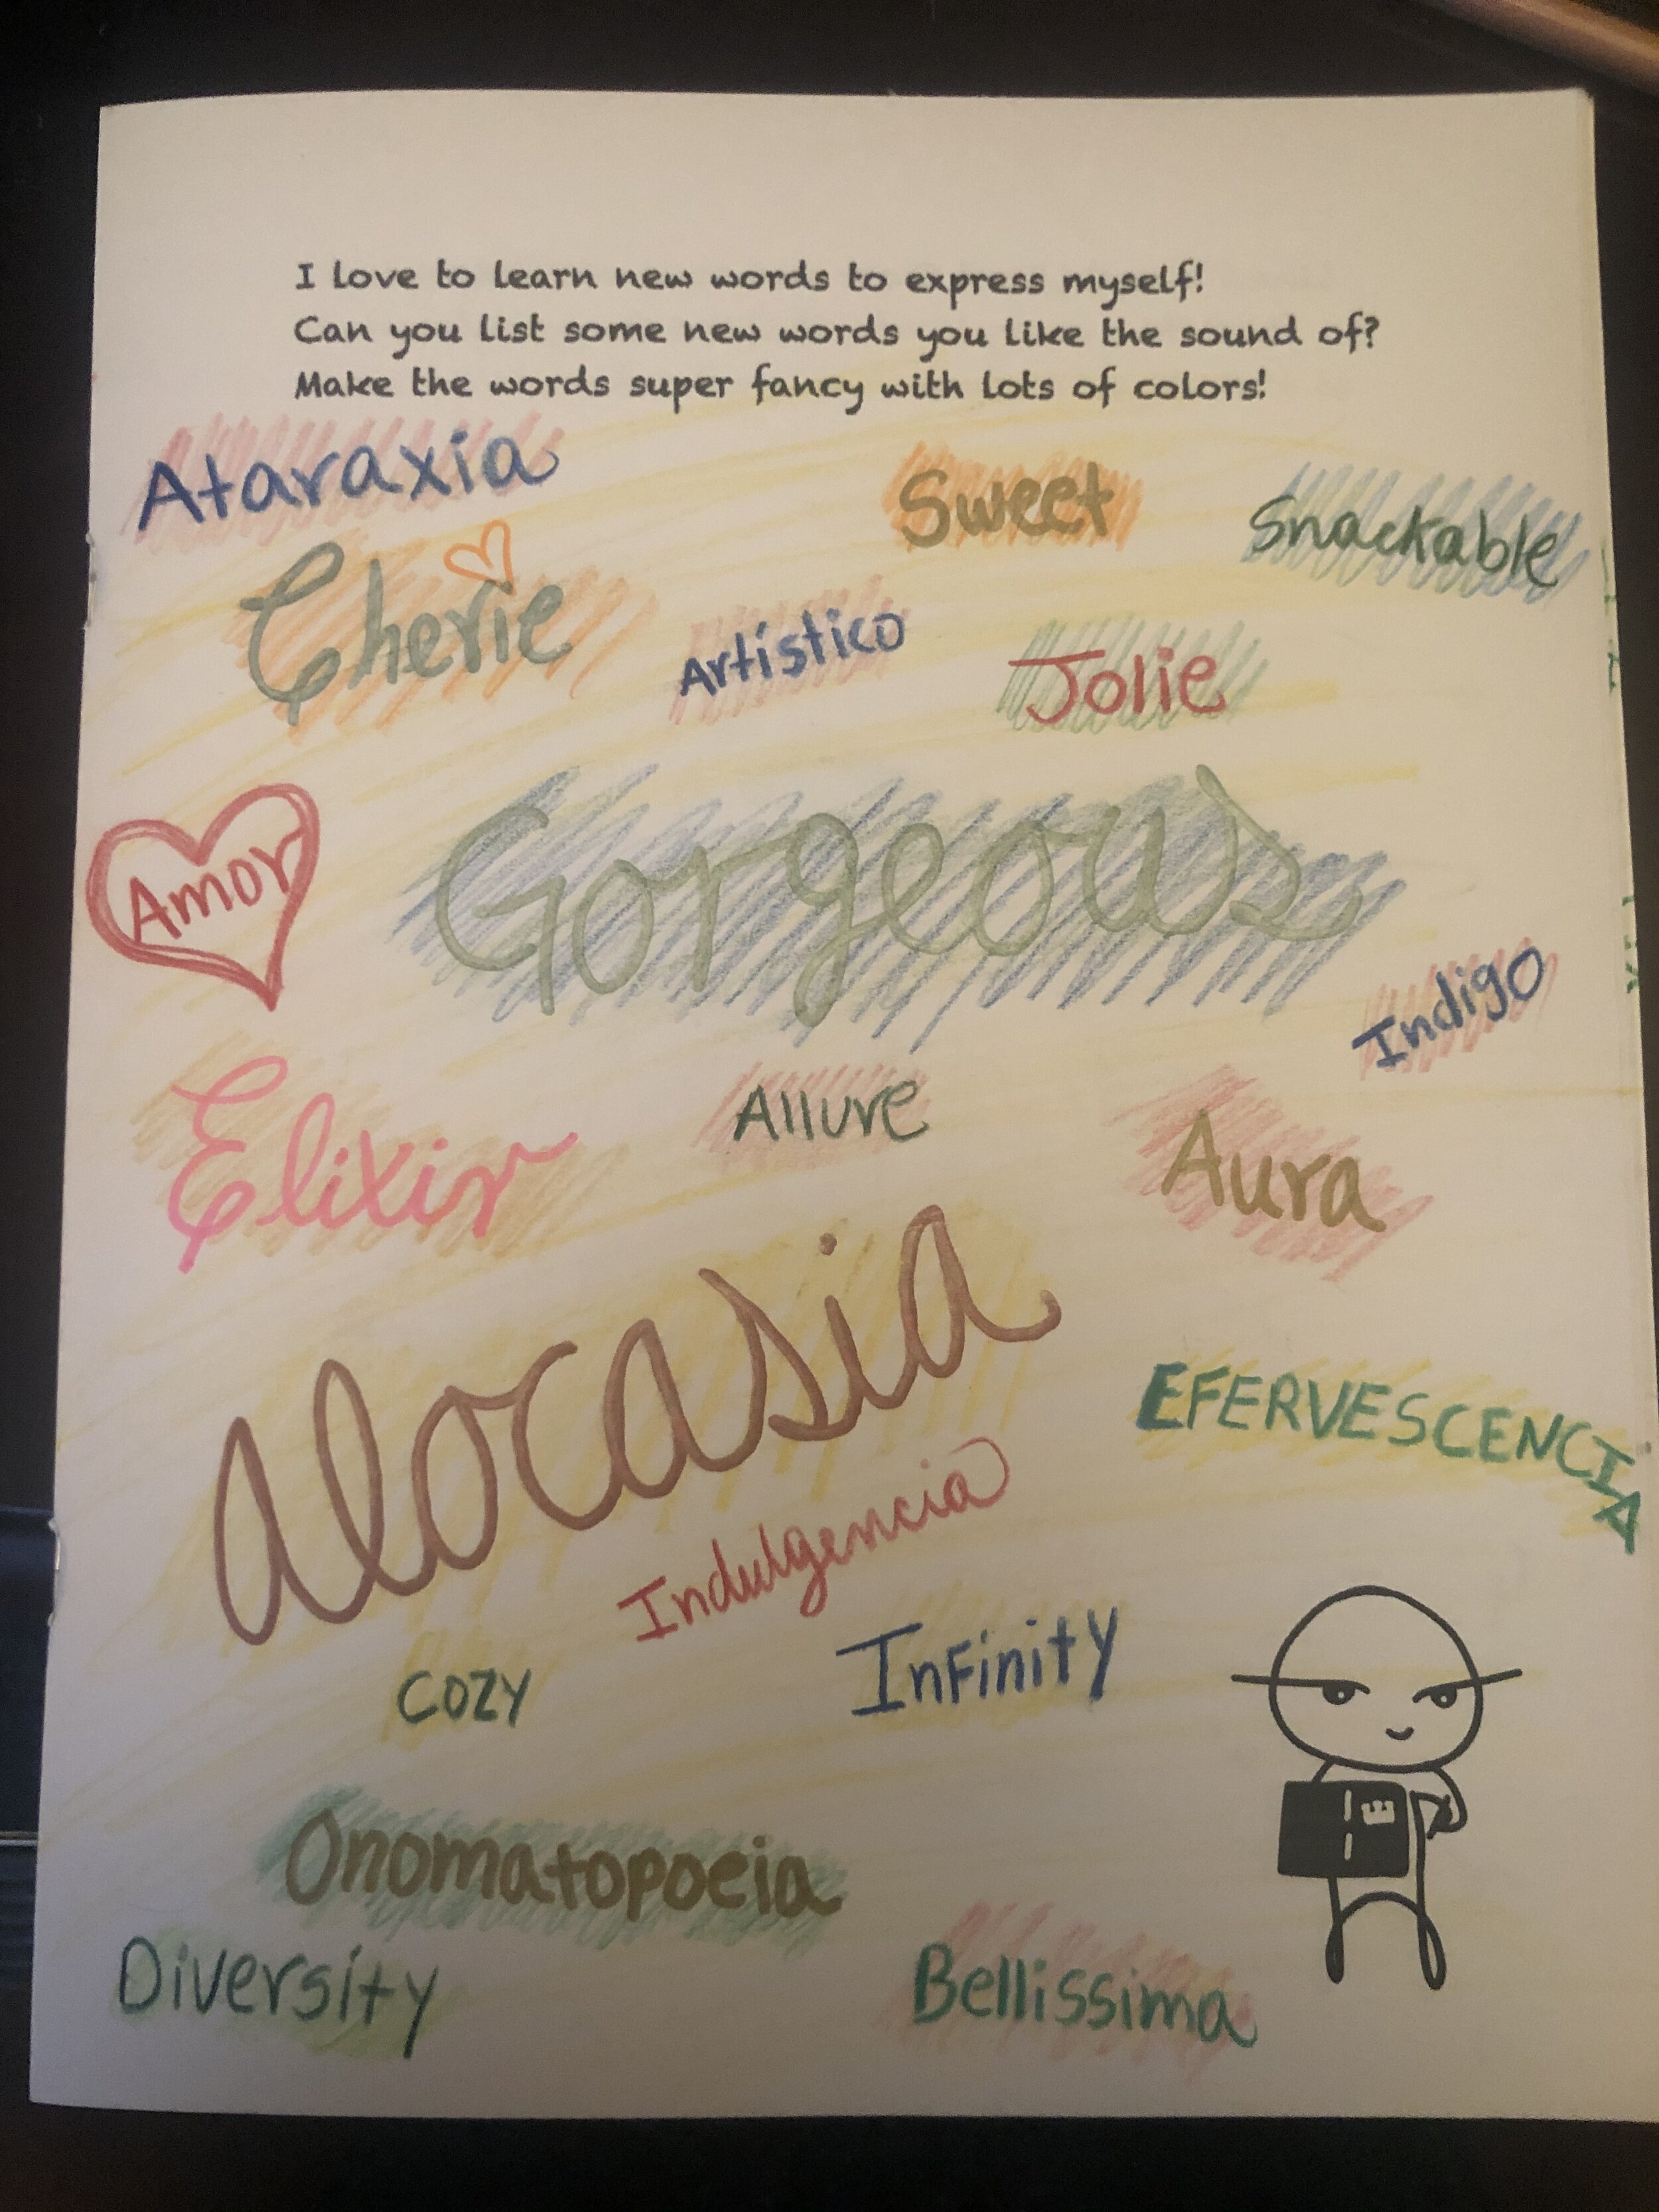 I love to learn new words to express myself!
Can you list some new words you like the sound of?
Make the words super fancy with lots of colors!
Ataraxia
Sweet
Snackable
Cherie
Artístico
Jolie
Amor
Gorgeous
Indigo
Elixir
Allure
Aura
Alocasia
EFERVESCENCIA
Indulgencia
Infinity
COZY
E
Onomatopoeia
Diversity
Bellissima